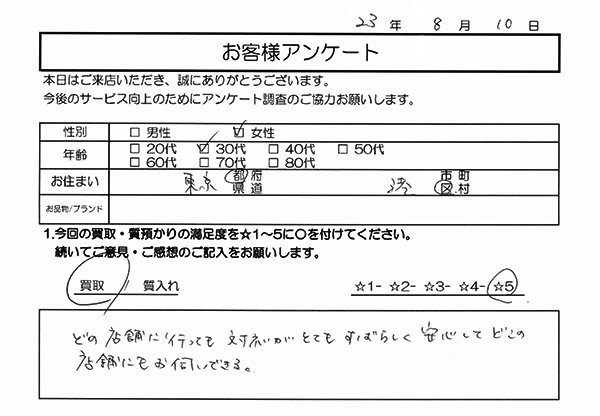 23年 8月 10日
お客様アンケート
本日はご来店いただき、誠にありがとうございます。
今後のサービス向上のためにアンケート調査のご協力お願いします。
性別 □ 男性 ☑ 女性
年齢 □ 20代 ☑ 30代 □ 40代 □ 50代
□ 60代 □ 70代 □ 80代
お住まい 東京 都府県道 港 市町区村
お品物/ブランド
1.今回の買取・質預かりの満足度を☆1～5に〇を付けてください。
続いてご意見・ご感想のご記入をお願いします。
買取 質入れ ☆1- ☆2- ☆3- ☆4- ☆5
どの店舗に行っても対応がとてもすばらしく安心してどこの
店舗にもお伺いできる。